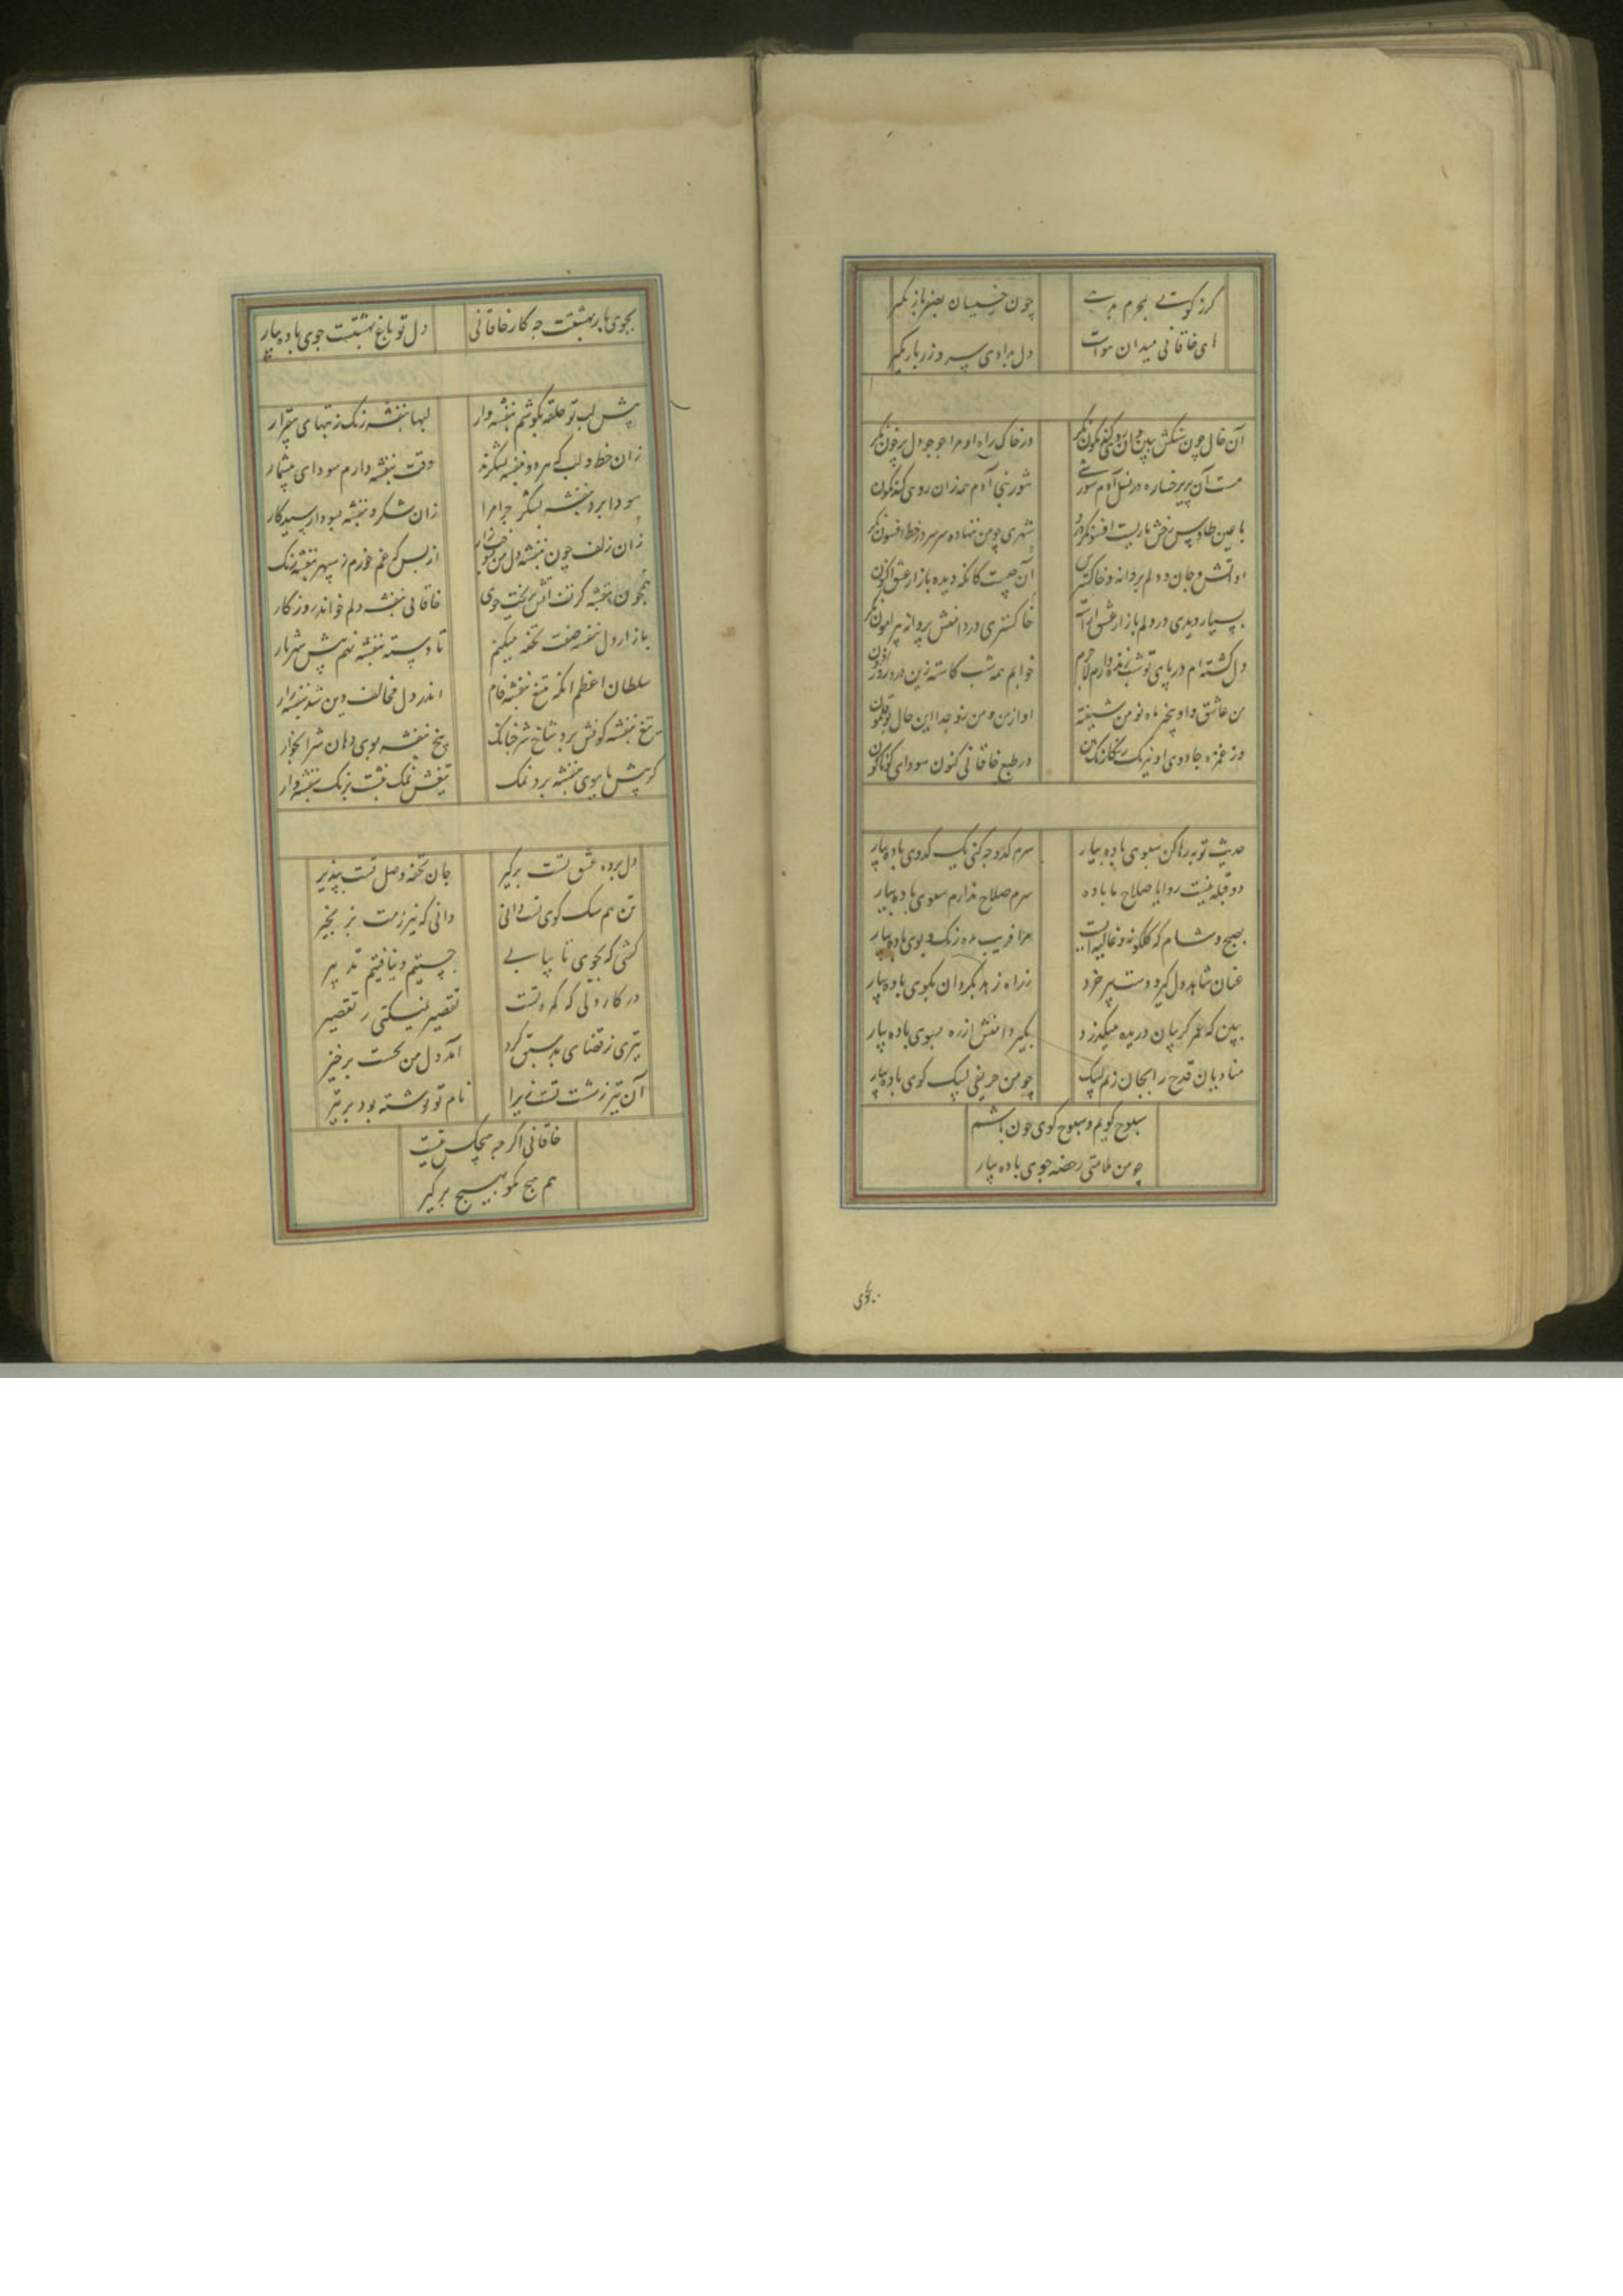 گر زکوتی بمحرم بدهی
چون خسیسان بصفر باز مگیر
های خاقانی میدان هوات
دل بدادی سر و زر باز مگیر
آن خال چون مشکش ببین وان روی گندمگون نگر
در خاک راه او مرا جو جو دل پرخون نگر
هست آن پریرخساره در نسل آدم شورشی
شور بنی آدم همه زان روی گندمگون
با چین طاوس رخش ماریست افسونگر درو
شهری چو من بنهاده سر سر در خط افسون نگر
او آتش و جان و دلم پروانه و خاکستری
خاکستری در دامنش پروانه پیرامون نگر
بسیار دیدی در دلم بازار عشق آراسته
آن چیست کانگه دیده بازار عشق اکنون
دل کشته ام در پای تو شب زنده دارم لاجرم
خوابم همه شب کاسته زین درد روز افزون
من عاشق و او بیخبر ماه نو و من شیفته
او از من و من زو جدا این حال بوقلمون
وز غمزه جادوی او نیرنگ رنگارنگ بین
در طبع خاقانی کنون سودای گوناگون
حدیث توبه رها کن سبوی باده بیار
سرم کدو چه کنی یک کدوی باده بیار
دو قبله نیست روا یا صلاح یا باده
سرم صلاح ندارم سبوی باده بیار
بصبح و شام که گلگونه و غالیه ایست
مرا فریب مده رنگ و بوی باده بیار
عنان شاهد دل گیر و دست پیر خرد
ز راه زهد بگردان بکوی باده بیار
ببین که عمر گریبان دریده میگذرد
بگیر دامنش از ره بسوی باده بیار
منادیان قدح را بجان زنم لبیک
چو من حریفی لبیک گوی باده بیار
سبوح گویم و سبوح گوی چون باشم
چو من ملامتی رخصه جوی باده بیار
بجوی
بجوی باربهشتت چه کار خاقانی
دل تو باغ بهشتست جوی باده بیار
پیش لب تو حلقه بگوشم بنفشه وار
لبها بنفشه رنگ ز تبهای بیقرار
زان خط و لب که هر دو بنفشه بشکرند
وقت بنفشه دارم سودای بیشمار
سودا برد بنفشه بشکر چرا مرا
زان شکر و بنفشه بسودا رسید کار
زان زلف چون بنفشه دل من بسوز
از بس که غم خورم ز سپهر بنفشه رنگ
همچون بنفشه کز تف آتش بریخت خوی
خاقانی بنفشه دلم خواند روزگار
بازار دل بنفسه صفت تحفه میکنم
تا دسته بنفشه نهم پیش شهریار
سلطان اعظم انکه تیغ بنفشه فام
اندر دل مخالف دین شد بنفشه زار
تیغ بنفشه گونش برد شاخ شر چنانک
بیخ بنفشه بوی دهان شرابخوار
گر پیشها ببوی بنفشه برد نمک
تیغش نمک نبشت برنگ بنفشه وار
دل برده عشق تست برگیر
جان تحفه وصل تست بپذیر
تن هم سگ کوی تست دانی
دانی که نیرزمت بز بخیر
گشتی که بجوی تا بیابی
جستیم و نیافتیم تدبیر
در کار دلی که گمره تست
تقصیر نمیکنی ز تقصیر
تیری ز قضای بد سبق کرد
آمد دل من بخست بر خیز
آن تیر ز شست تست زیرا
نام تو نوشته بود بر تیر
خاقانی اگر چه هیچکس نیست
هم هیچ مگو بهیچ برگیر